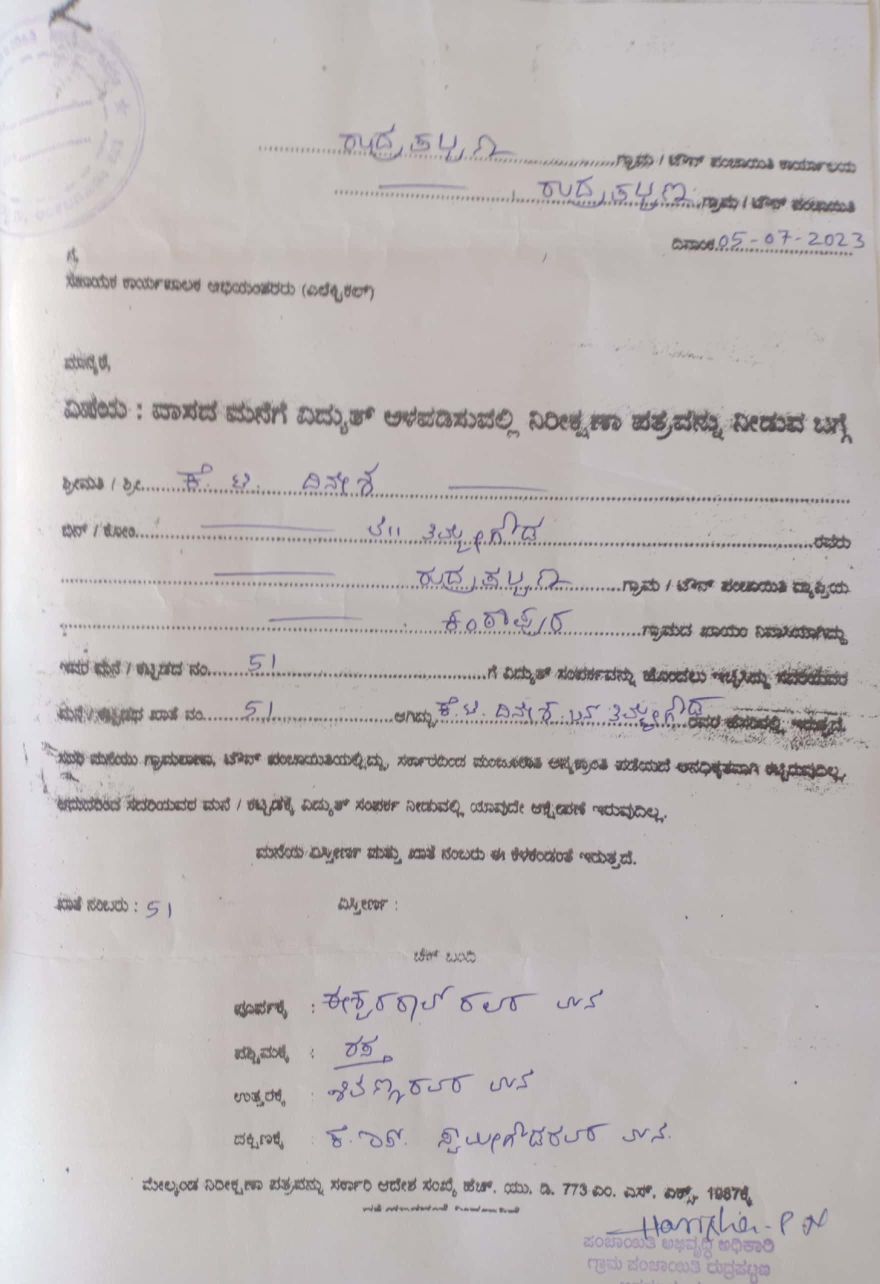 ರುದ್ರಪಟ್ಟಣ ಗ್ರಾಮ / ಟೌನ್ ಪಂಚಾಯಿತಿ ಕಾರ್ಯಾಲಯ
ರುದ್ರಪಟ್ಟಣ ಗ್ರಾಮ / ಟೌನ್ ಪಂಚಾಯಿತಿ
ದಿನಾಂಕ 05-07-2023
ಗೆ,
ಸಹಾಯಕ ಕಾರ್ಯಪಾಲಕ ಅಭಿಯಂತರರು (ಎಲೆಕ್ಟ್ರಿಕಲ್)
ಮಾನ್ಯರೆ,
ವಿಷಯ : ವಾಸದ ಮನೆಗೆ ವಿದ್ಯುತ್ ಅಳವಡಿಸುವಲ್ಲಿ ನಿರೀಕ್ಷಣಾ ಪತ್ರವನ್ನು ನೀಡುವ ಬಗ್ಗೆ
ಶ್ರೀಮತಿ / ಶ್ರೀ. ಕೆ. ಟಿ. ದಿನೇಶ
ಬಿನ್ / ಕೋಂ. ತಿಮ್ಮೇಗೌಡ ರವರು
ರುದ್ರಪಟ್ಟಣ ಗ್ರಾಮ / ಟೌನ್ ಪಂಚಾಯಿತಿ ವ್ಯಾಪ್ತಿಯ
ಗ್ರಾಮದ ಖಾಯಂ ನಿವಾಸಿಯಾಗಿದ್ದು
ಇವರ ಮನೆ / ಕಟ್ಟಡದ ನಂ. 51 ಗೆ ವಿದ್ಯುತ್ ಸಂಪರ್ಕವನ್ನು ಹೊಂದಲು ಇಚ್ಛಿಸಿದ್ದು ಸದರಿಯವರ
ಮನೆ / ಕಟ್ಟಡಥ ಖಾತೆ ನಂ. 51 ಆಗಿದ್ದು ಕೆ. ಟಿ. ದಿನೇಶ ಬಿನ್ ತಿಮ್ಮೇಗೌಡ ರವರ ಹೆಸರಿನಲ್ಲಿ ಇರುತ್ತದೆ.
ಸದರಿ ಮನೆಯು ಗ್ರಾಮಠಾಣಾ, ಟೌನ್ ಪಂಚಾಯಿತಿಯಲ್ಲಿದ್ದು, ಸರ್ಕಾರದಿಂದ ಮಂಜೂರಾತಿ ಅನ್ಯಕ್ರಾಂತಿ ಪಡೆಯದೆ ಅನಧಿಕೃತವಾಗಿ ಕಟ್ಟಿರುವುದಿಲ್ಲ,
ಆದುದರಿಂದ ಸದರಿಯವರ ಮನೆ / ಕಟ್ಟಡಕ್ಕೆ ವಿದ್ಯುತ್ ಸಂಪರ್ಕ ನೀಡುವಲ್ಲಿ ಯಾವುದೇ ಆಕ್ಷೇಪಣೆ ಇರುವುದಿಲ್ಲ.
ಮನೆಯ ವಿಸ್ತೀರ್ಣ ಮತ್ತು ಖಾತೆ ನಂಬರು ಈ ಕೆಳಕಂಡಂತೆ ಇರುತ್ತದೆ.
ಖಾತೆ ನಂಬರು : 51 ವಿಸ್ತೀರ್ಣ :
ಚೆಕ್ ಬಂದಿ
ಪೂರ್ವಕ್ಕೆ : ರವರ ಮನೆ
ಪಶ್ಚಿಮಕ್ಕೆ : ರಸ್ತೆ
ಉತ್ತರಕ್ಕೆ : ಶಿವಣ್ಣರವರ ಮನೆ
ದಕ್ಷಿಣಕ್ಕೆ : ಸ್ವಾಮೀಗೌಡರವರ ಮನೆ.
ಮೇಲ್ಕಂಡ ನಿರೀಕ್ಷಣಾ ಪತ್ರವನ್ನು ಸರ್ಕಾರಿ ಆದೇಶ ಸಂಖ್ಯೆ ಹೆಚ್. ಯು. ಡಿ. 773 ಎಂ. ಎಸ್. ಎಕ್ಸ್. 1987ಕ್ಕೆ
ಪಂಚಾಯಿತಿ ಅಭಿವೃದ್ಧಿ ಅಧಿಕಾರಿ
ಗ್ರಾಮ ಪಂಚಾಯಿತಿ ರುದ್ರಪಟ್ಟಣ